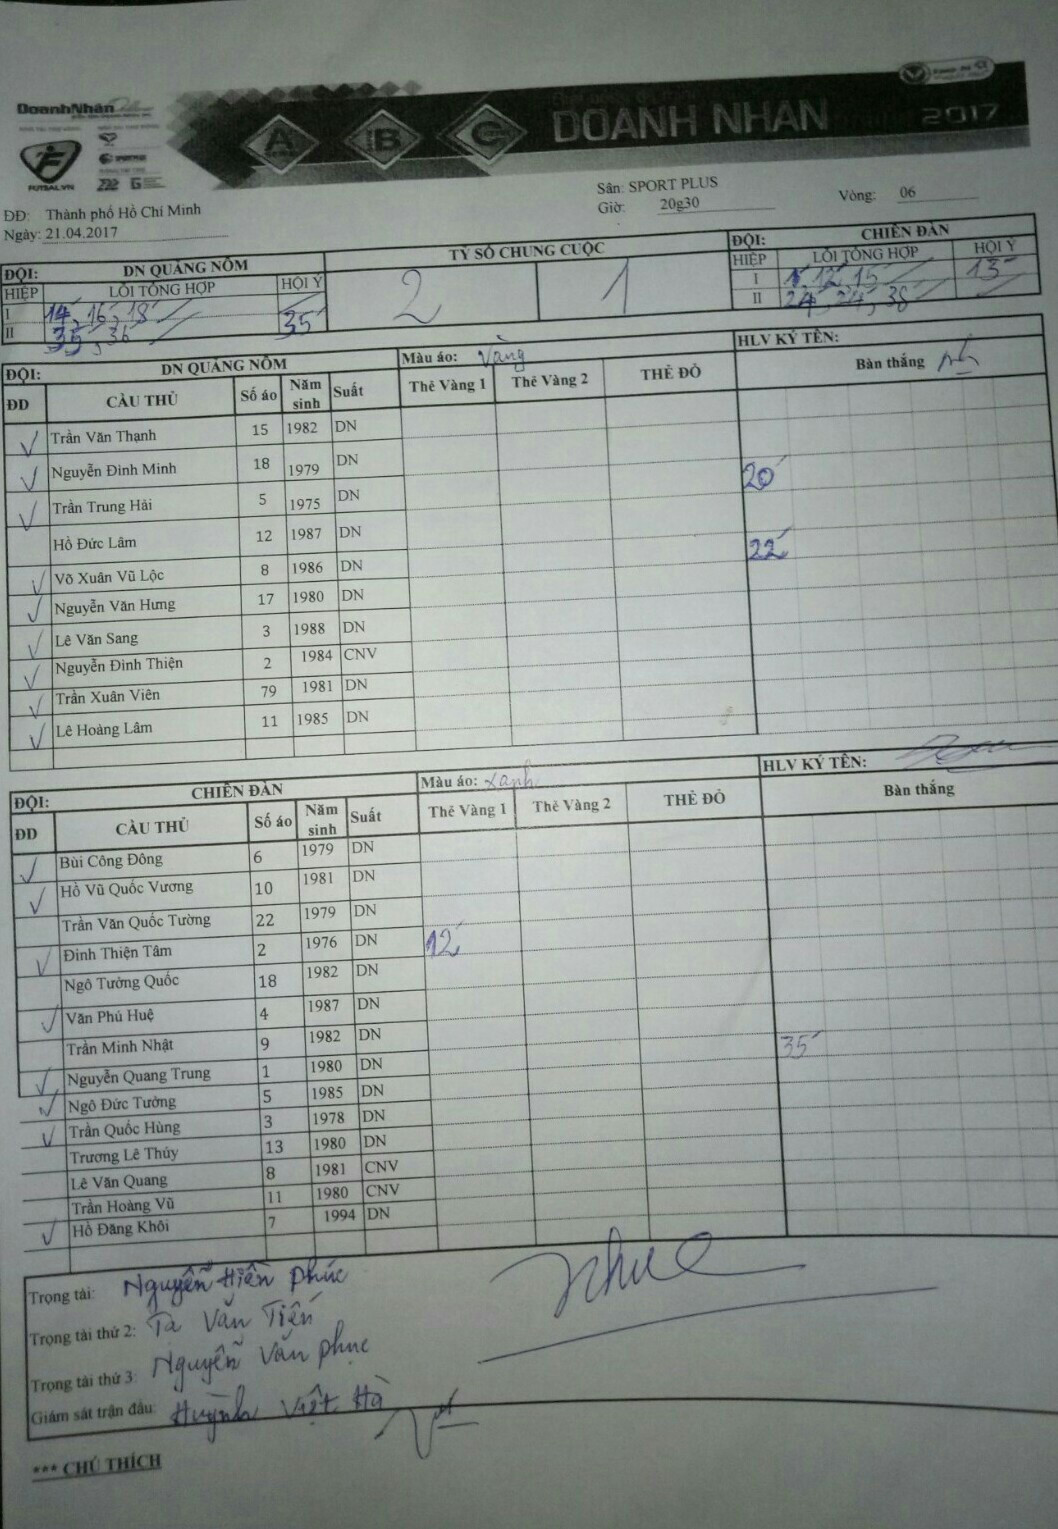 DoanhNhân
FUTSAL.VN
A B C
DOANH NHAN 2017
Sân: SPORT PLUS
Giờ: 20g30
Vòng: 06
ĐĐ: Thành phố Hồ Chí Minh
Ngày: 21.04.2017
ĐỘI: DN QUẢNG NÔM
TỶ SỐ CHUNG CUỘC
ĐỘI: CHIÊN ĐÀN
HIỆP LỖI TỔNG HỢP HỘI Ý
2 1
HIỆP LỖI TỔNG HỢP HỘI Ý
I 14, 16, 18
II 35, 36 35
I 12, 15 13
II 24, 24, 38
ĐỘI: DN QUẢNG NÔM Màu áo: Vàng HLV KÝ TÊN:
ĐD CẦU THỦ Số áo Năm sinh Suất Thẻ Vàng 1 Thẻ Vàng 2 THẺ ĐỎ Bàn thắng
Trần Văn Thạnh 15 1982 DN
Nguyễn Đình Minh 18 1979 DN 20
Trần Trung Hải 5 1975 DN
Hồ Đức Lâm 12 1987 DN 22
Võ Xuân Vũ Lộc 8 1986 DN
Nguyễn Văn Hưng 17 1980 DN
Lê Văn Sang 3 1988 DN
Nguyễn Đình Thiện 2 1984 CNV
Trần Xuân Viên 79 1981 DN
Lê Hoàng Lâm 11 1985 DN
ĐỘI: CHIÊN ĐÀN Màu áo: Xanh HLV KÝ TÊN:
ĐD CẦU THỦ Số áo Năm sinh Suất Thẻ Vàng 1 Thẻ Vàng 2 THẺ ĐỎ Bàn thắng
Bùi Công Đông 6 1979 DN
Hồ Vũ Quốc Vương 10 1981 DN
Trần Văn Quốc Tường 22 1979 DN
Đinh Thiện Tâm 2 1976 DN 12
Ngô Tường Quốc 18 1982 DN
Văn Phú Huệ 4 1987 DN
Trần Minh Nhật 9 1982 DN 35
Nguyễn Quang Trung 1 1980 DN
Ngô Đức Tường 5 1985 DN
Trần Quốc Hùng 3 1978 DN
Trương Lê Thúy 13 1980 DN
Lê Văn Quang 8 1981 CNV
Trần Hoàng Vũ 11 1980 CNV
Hồ Đăng Khôi 7 1994 DN
Trọng tài: Nguyễn Hiền Phúc
Trọng tài thứ 2: Tạ Văn Tiến
Trọng tài thứ 3: Nguyễn Văn Phục
Giám sát trận đấu: Huỳnh Việt Hà
*** CHÚ THÍCH